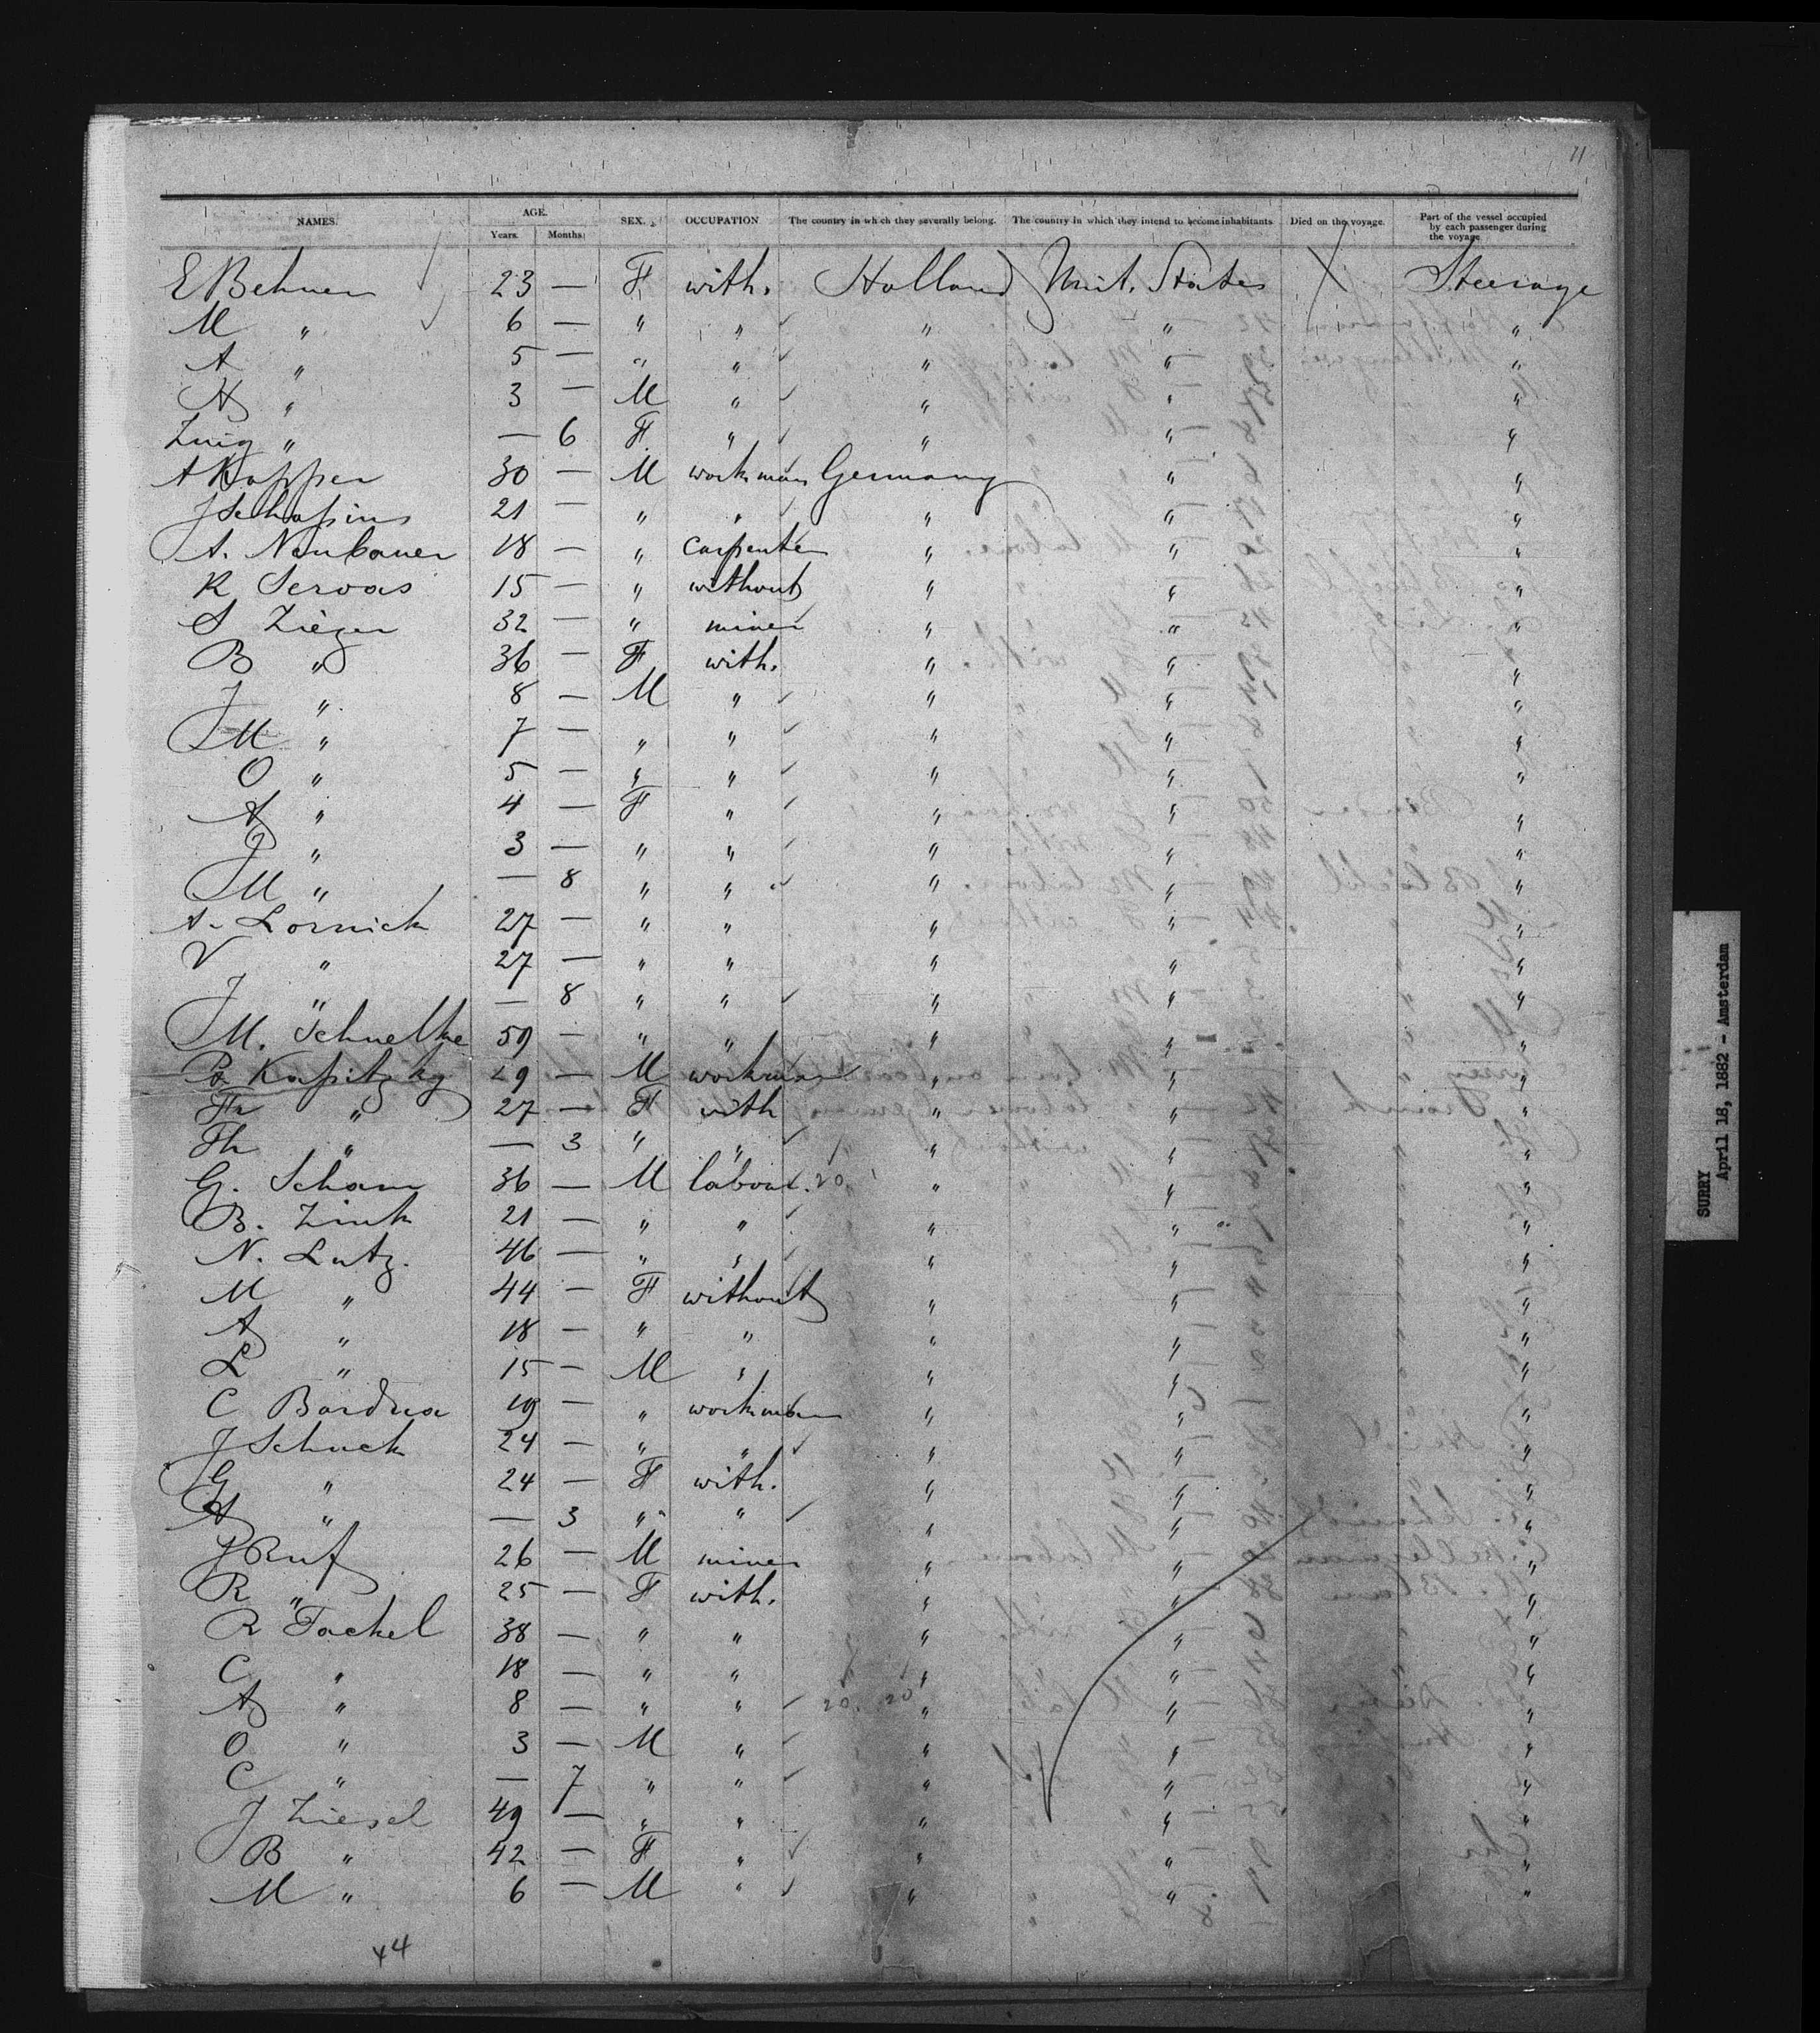 11
NAMES. AGE. SEX. OCCUPATION The country in which they severally belong. The country in which they intend to become inhabitants Died on the voyage. Part of the vessel occupied by each passenger during the voyage
Years. Months.
E Behnen 23 — F with. Holland Unit. States Steerage
M " 6 — " " " " "
A " 5 — " " " " "
H " 3 — M " " " "
" — 6 F " " " "
A Kappen 30 — M workman Germany " "
J 21 — " " " " "
A. Neubauer 18 — " carpenter " " "
R Servas 15 — " without " " "
S Zieger 32 — " miner " " "
B " 36 — F with. " " "
J " 8 — M " " " "
M " 7 — " " " " "
O " 5 — " " " " "
A " 4 — F " " " "
J " 3 — " " " " "
M " — 8 " " " " "
A. Lornick 27 — " " " " "
V " 27 — " " " " "
J " — 8 " " " " "
M. Schnelke 59 — " " " " "
Kapitzky 29 — M workman " " "
Fr " 27 — F with " " "
Th " — 3 " " " " "
G. Scham 36 — M labour. 20 " " "
B. Zink 21 — " " " " "
N. Lutz. 46 — " " " " "
M " 44 — F without " " "
A " 18 — " " " " "
L " 15 — M " " " "
C Bardua 19 — " workman " " "
J Schuck 24 — " " " " "
G " 24 — F with. " " "
A " — 3 " " " " "
J Ruf 26 — M miner " " "
R " 25 — F with. " " "
R Tackel 38 — " " " " "
C " 18 — " " " " "
A " 8 — " " 20. 20 " " "
O " 3 — M " " " "
C " — 7 " " " " "
J Ziesel 49 — " " " " "
B " 42 — F " " " "
M " 6 — M " " " "
44
SURRY
April 18, 1882 - Amsterdam